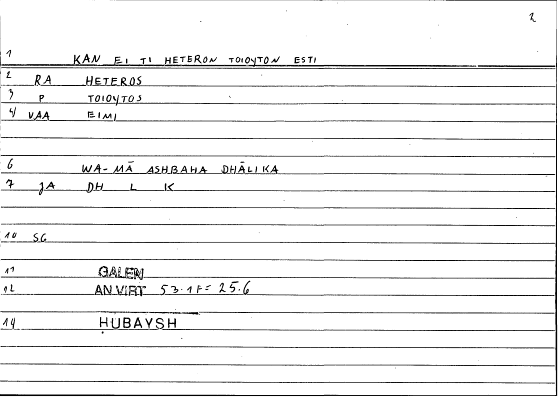 2
1 KAN EI TI HETERON TOIOYTON ESTI
2 RA HETEROS
3 P TOIOYTOS
4 VAA EIMI
6 WA-MĀ ASHBAHA DHĀLIKA
7 JA DH L K
10 SG
11 GALEN
12 AN VIRT 53.1F= 25.6
14 HUBAYSH